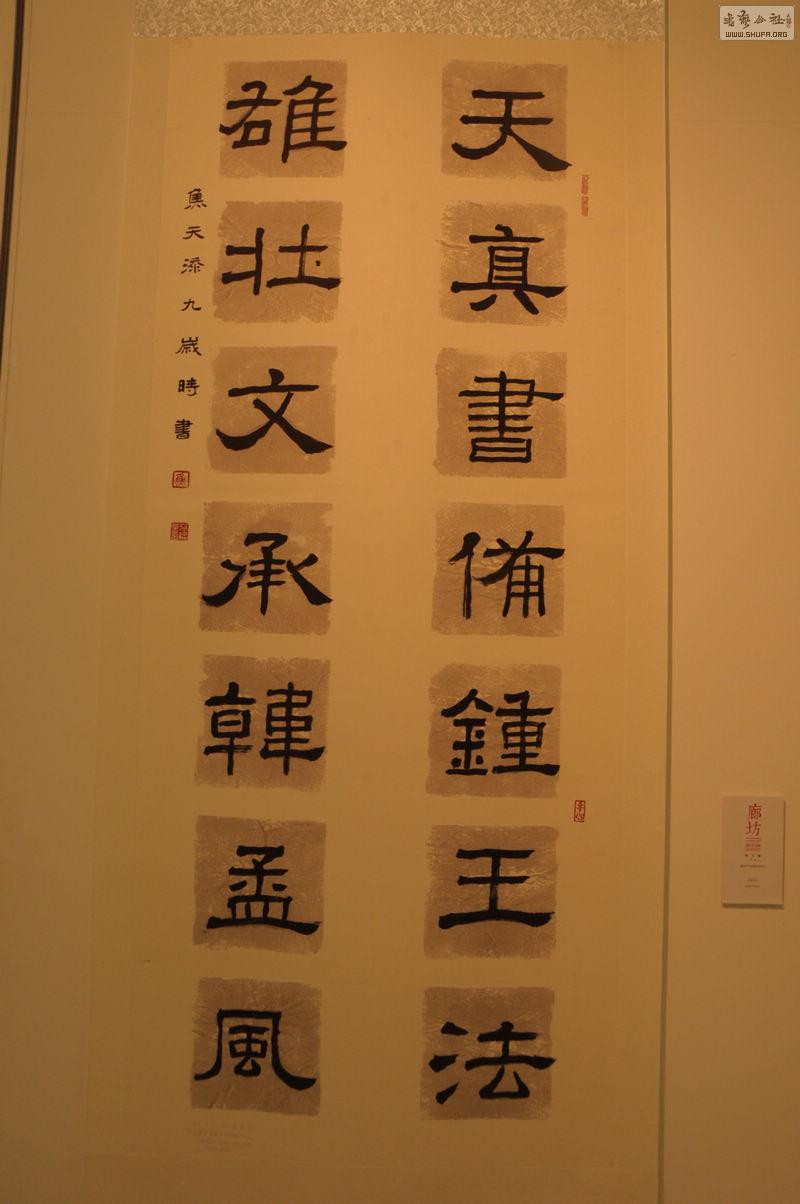 天真書備鍾王法
雄壯文承韓孟風
焦天添九歲時書
廊坊
书艺公社
WWW.SHUFA.ORG